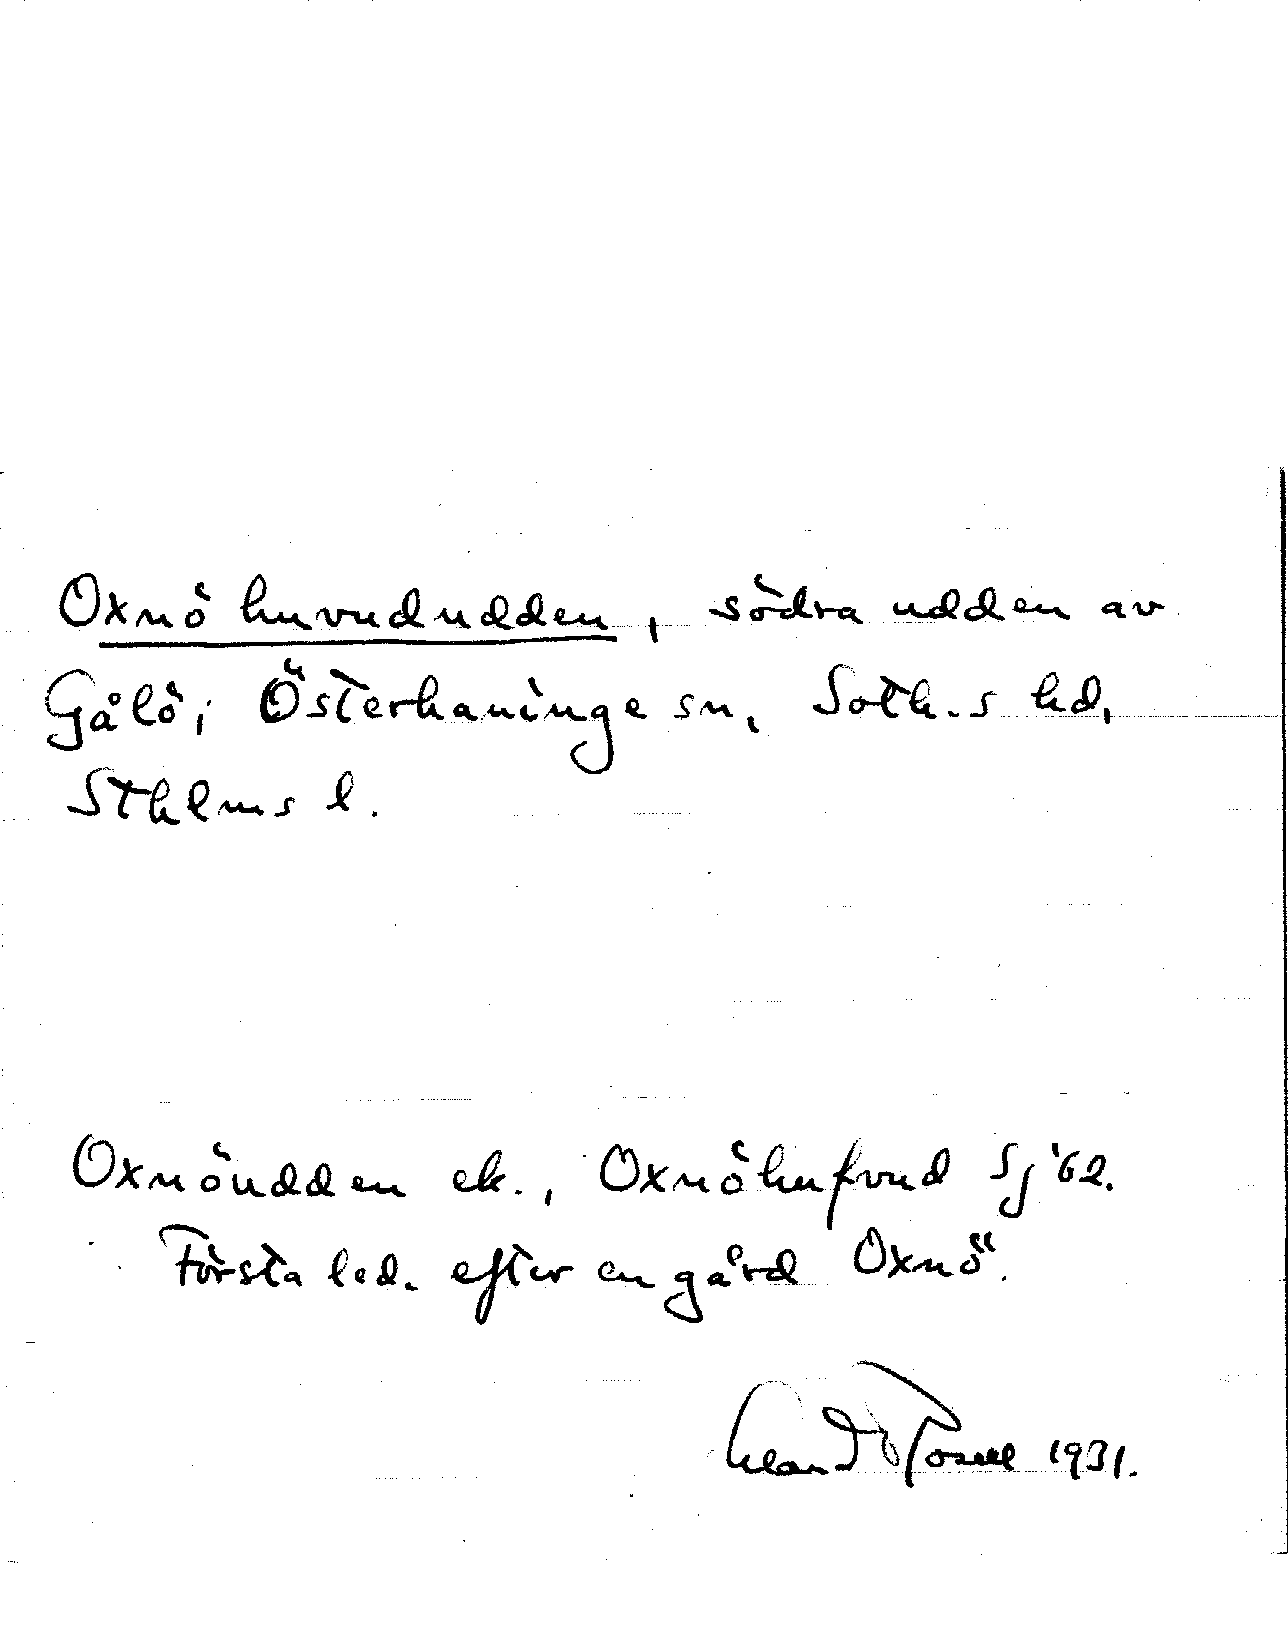 Oxnö huvududden, södra udden av
Gålö, Österhaninge sn, Soth.s hd,
Sthlms l.
Oxnöudden ek., Oxnöhufvud Sj '62.
Första led. efter en gård Oxnö.
1931.